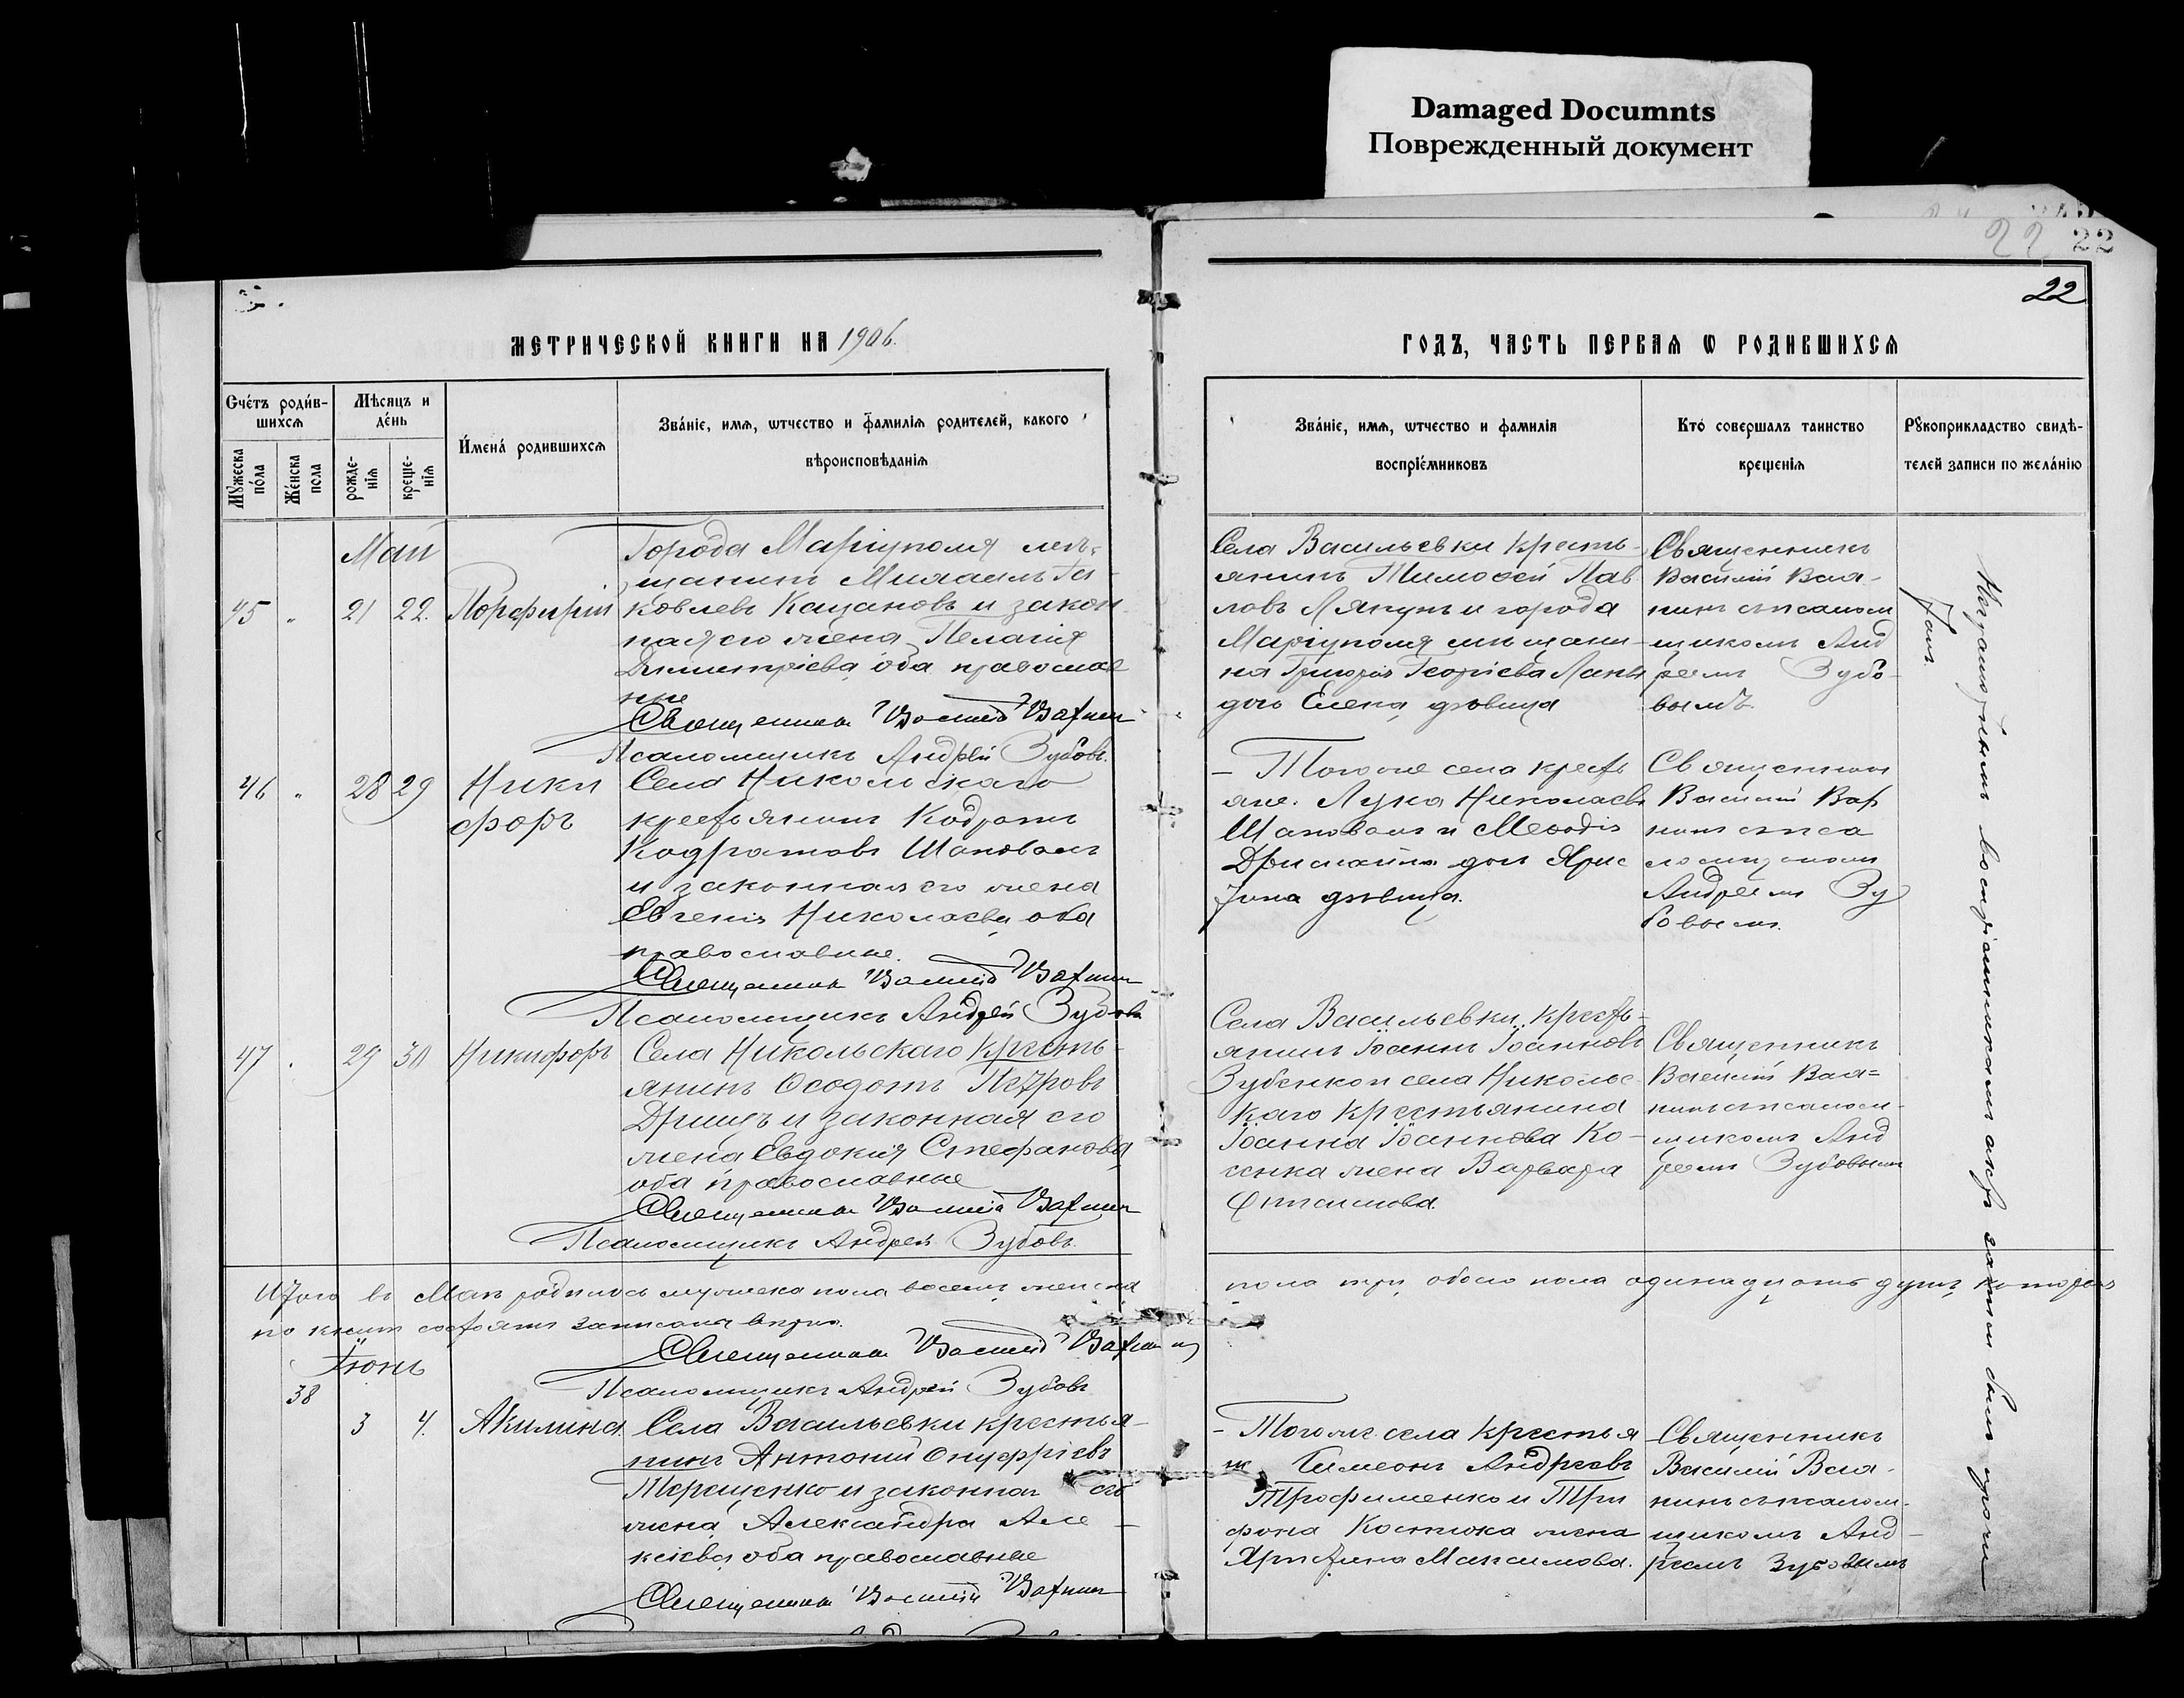 Damaged Documnts
Поврежденный документ
22 22
22
МЕТРИЧЕСКОЙ КНИГИ НА 1906.
ГОДЪ, ЧАСТЬ ПЕРВАЯ Ѡ РОДИВШИХСЯ
Счéтъ роди́вшихсѧ
Мѣсяцъ и дéнь
И́менá родившихсѧ
Звáнїе, имѧ, ѿчество и фамилїѧ родителей, какого
вѣроисповѣданїѧ
Мꙋжеска пóла
Жéнска пола
рожде-нїѧ
креще-нїѧ
Звáнїе, имѧ, ѿчество и фамилїѧ
воспрїéмниковъ
Ктó совершалъ таинство
крещенїѧ
Рꙋкоприкладство свидѣ-
телей записи по желáнїю
Май
45 " 21 22. Порфирій
Города Маріуполя мѣ-
щанинъ Михаилъ Іа-
ковлевъ Кацановъ и закон
ная его жена Пелагія
Димитріева, оба православ
ные
Священникъ Василій
Псаломщикъ Андрей Зубовъ.
Села Васильевки кресть-
янинъ Тимоѳей Пав
ловъ Ляпунъ и города
Маріуполя мѣщани-
на Григорія Георгіева
дочь Елена, дѣвица
Священникъ
Василій
нинъ съ псалом
щикомъ Анд
реемъ Зубо-
вымъ
46 " 28 29 Ники
форъ
Села Никольскаго
крестьянинъ Кодратъ
Кодратовъ Шаповалъ
и законная его жена
Евгенія Николаева, оба
православные.
Священникъ Василій
Псаломщикъ Андрей Зубовъ
- Того же села кресть
яне: Лука Николаевъ
Шаповалъ и Меѳодія
дочь Хрис
тина дѣвица.
Священникъ
Василій
нинъ съ пса
ломщикомъ
Андреемъ Зу
бовымъ.
47 " 29 30 Никифоръ
Села Никольскаго кресть-
янинъ Ѳеодотъ Петровъ
и законная его
жена Евдокія Стефанова,
оба православные
Священникъ Василій
Псаломщикъ Андрей Зубовъ.
Села Васильевки кресть-
янинъ Іоаннъ Іоанновъ
Зубенко и села Николь с
каго крестьянина
Іоанна Іоаннова Ко-
сенка жена Варвара
Священникъ
Василій
нинъ съ псалом-
щикомъ Анд
реемъ Зубовымъ
Итого въ Маѣ родилось мужеска пола восемь, женска
пола три, обоего пола одинадцать душъ,
записана вѣрно.
Священникъ Василій
Псаломщикъ Андрей Зубовъ
Іюнь
38
3 4. Акилина
Села Васильевки крестья-
нинъ Антоній Онуфріевъ
Терещенко и законная его
жена Александра Але-
ксіева, оба православные
Священникъ Василій
- Того же села крестья
не Симеонъ Андреевъ
Трофименко и Три
фона Костюка жена
Христина Максимова.
Священникъ
Василій
нинъ съ псалом-
щикомъ Анд-
реемъ Зубовымъ